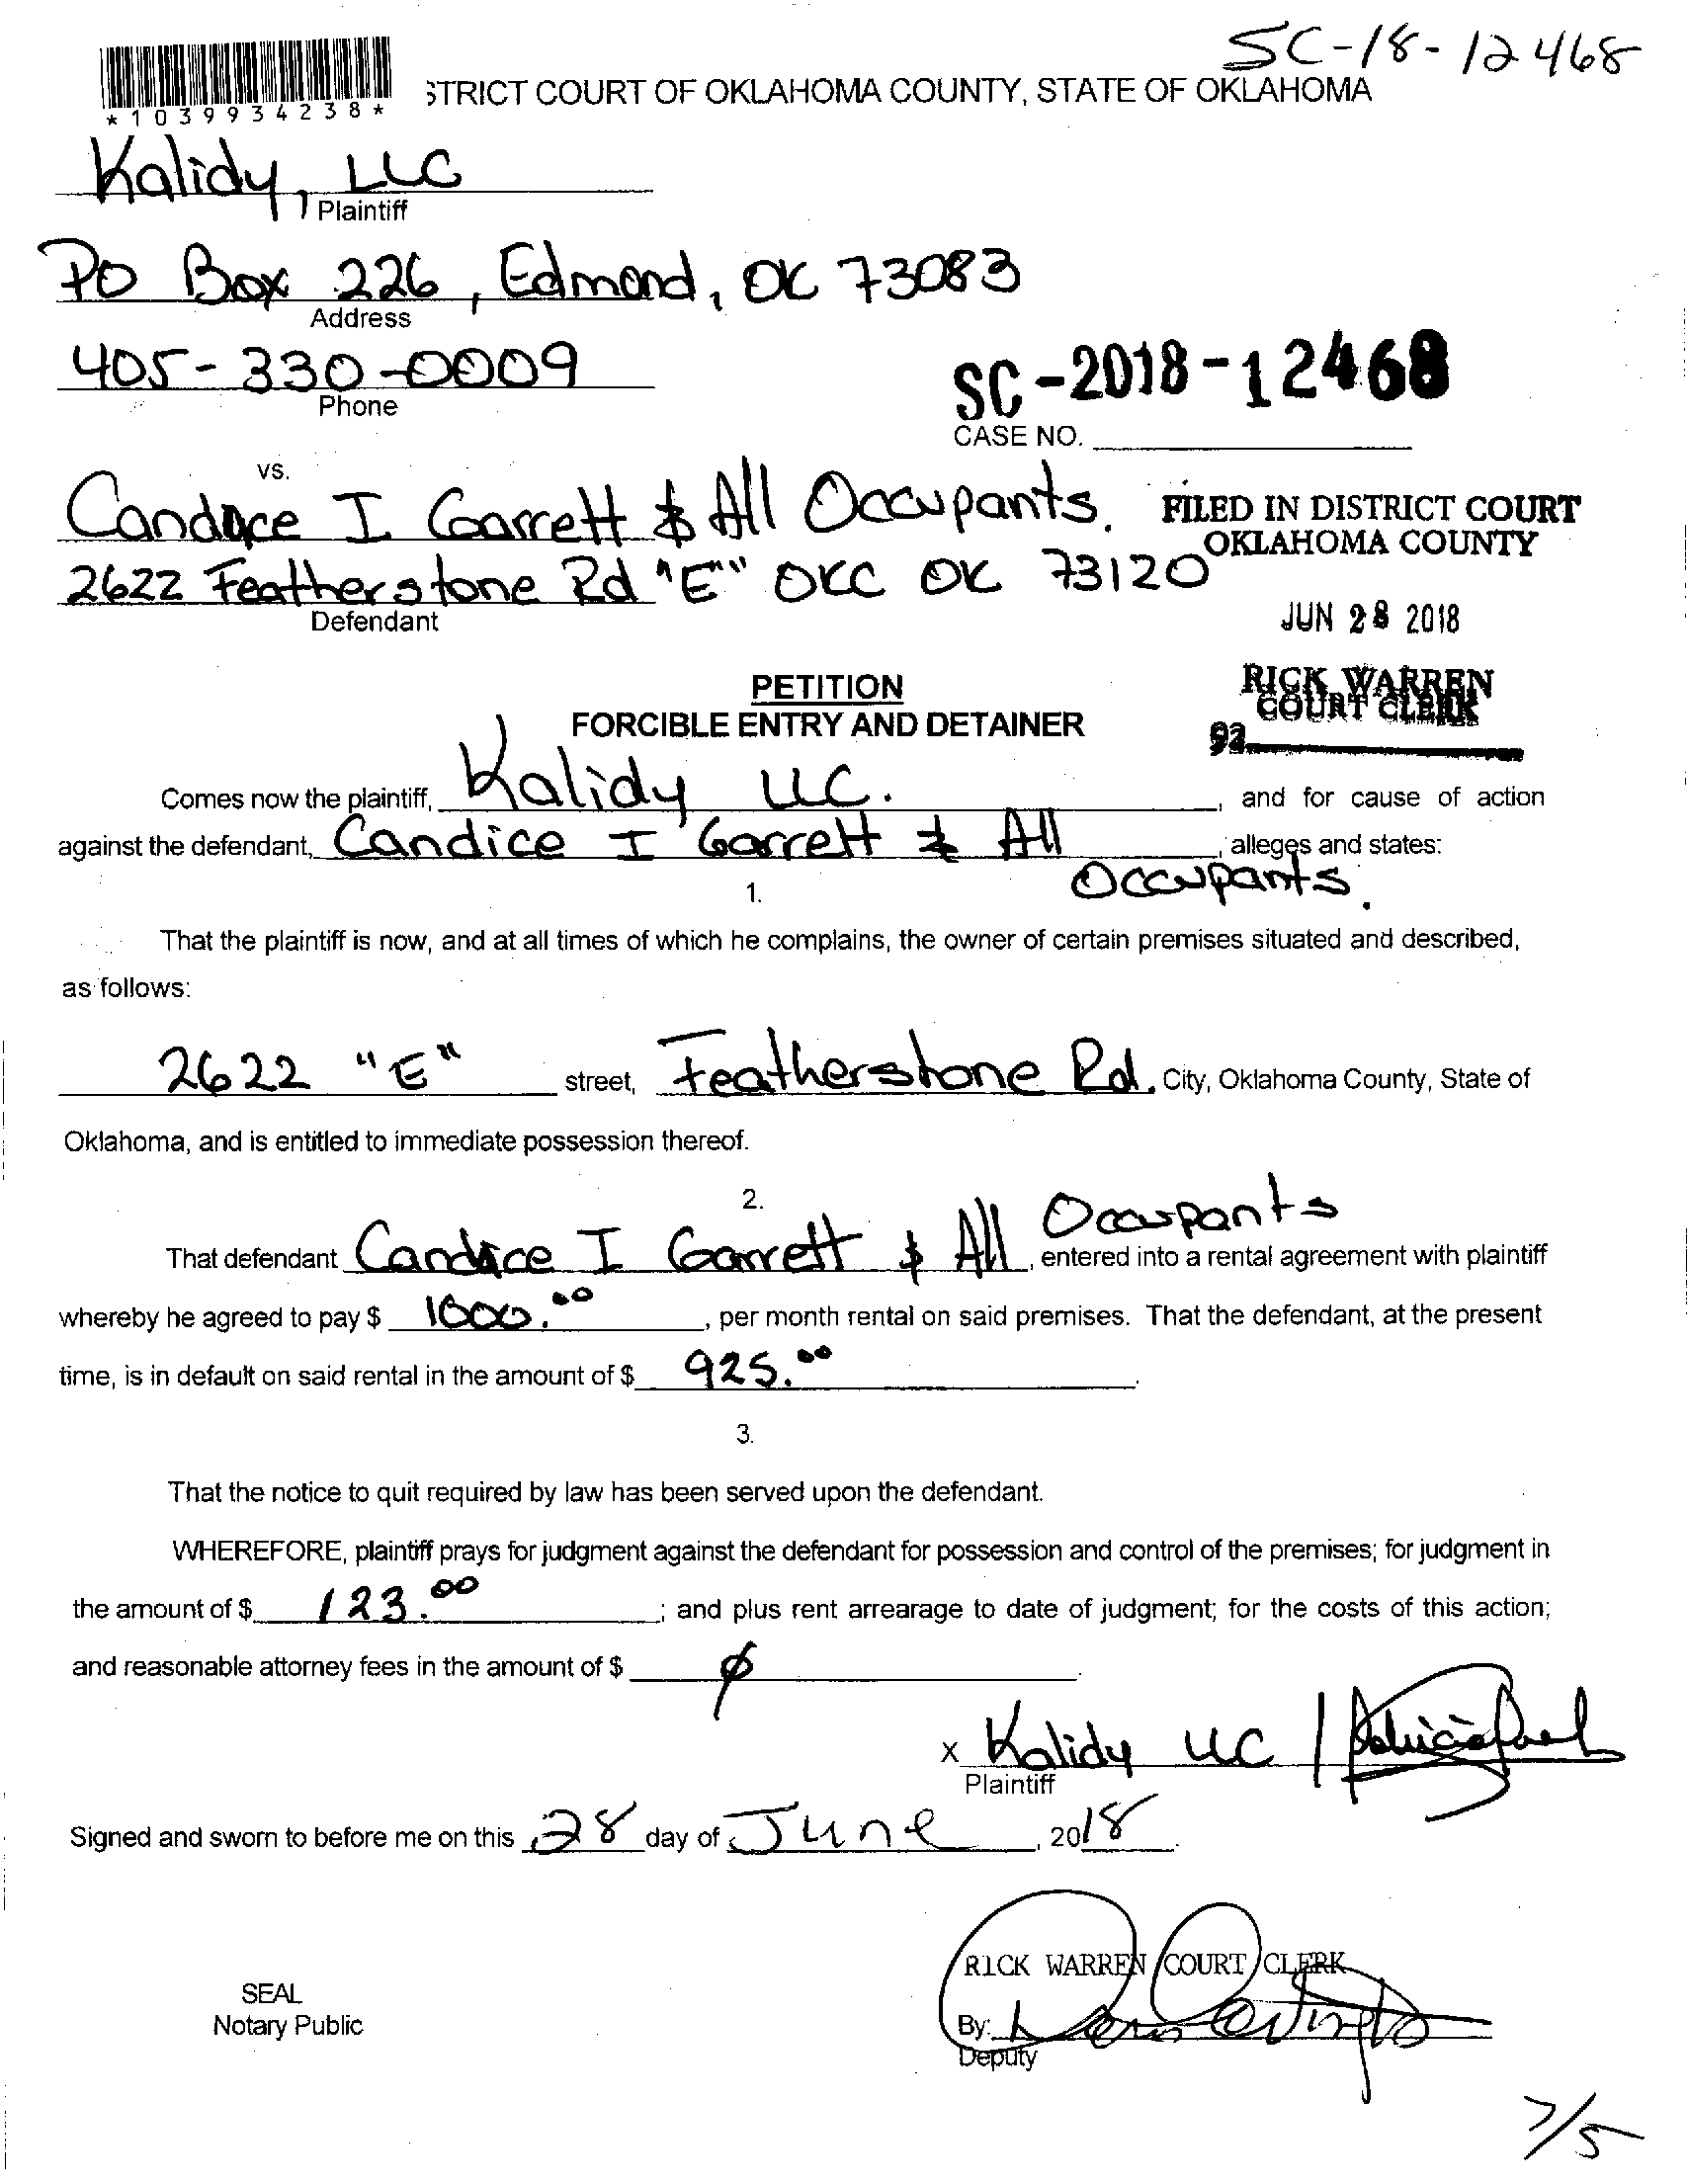 SC-18-12468
STRICT COURT OF OKLAHOMA COUNTY, STATE OF OKLAHOMA
*1039934238*
Kalidy, LLC
Plaintiff
PO Box 226, Edmond, OK 73083
Address
405-330-0009
Phone
SC-2018-12468
CASE NO.
vs.
Candace I Garrett & All Occupants.
FILED IN DISTRICT COURT
OKLAHOMA COUNTY
2622 Featherstone Rd "E" OKC OK 73120
Defendant
JUN 28 2018
PETITION
RICK WARREN
COURT CLERK
FORCIBLE ENTRY AND DETAINER
92
Comes now the plaintiff, Kalidy LLC. , and for cause of action
against the defendant, Candice I Garrett & All , alleges and states:
Occupants.
1.
That the plaintiff is now, and at all times of which he complains, the owner of certain premises situated and described,
as follows:
2622 "E" street, Featherstone Rd. City, Oklahoma County, State of
Oklahoma, and is entitled to immediate possession thereof.
2.
Occupants
That defendant Candace I Garrett & All , entered into a rental agreement with plaintiff
whereby he agreed to pay $ 1000.00 , per month rental on said premises. That the defendant, at the present
time, is in default on said rental in the amount of $ 925.00 .
3.
That the notice to quit required by law has been served upon the defendant.
WHEREFORE, plaintiff prays for judgment against the defendant for possession and control of the premises; for judgment in
the amount of $ 123.00 ; and plus rent arrearage to date of judgment; for the costs of this action;
and reasonable attorney fees in the amount of $ ø .
x Kalidy LLC /
Plaintiff
Signed and sworn to before me on this 28 day of June , 2018 .
RICK WARREN COURT CLERK
SEAL
Notary Public
By:
Deputy
7/5